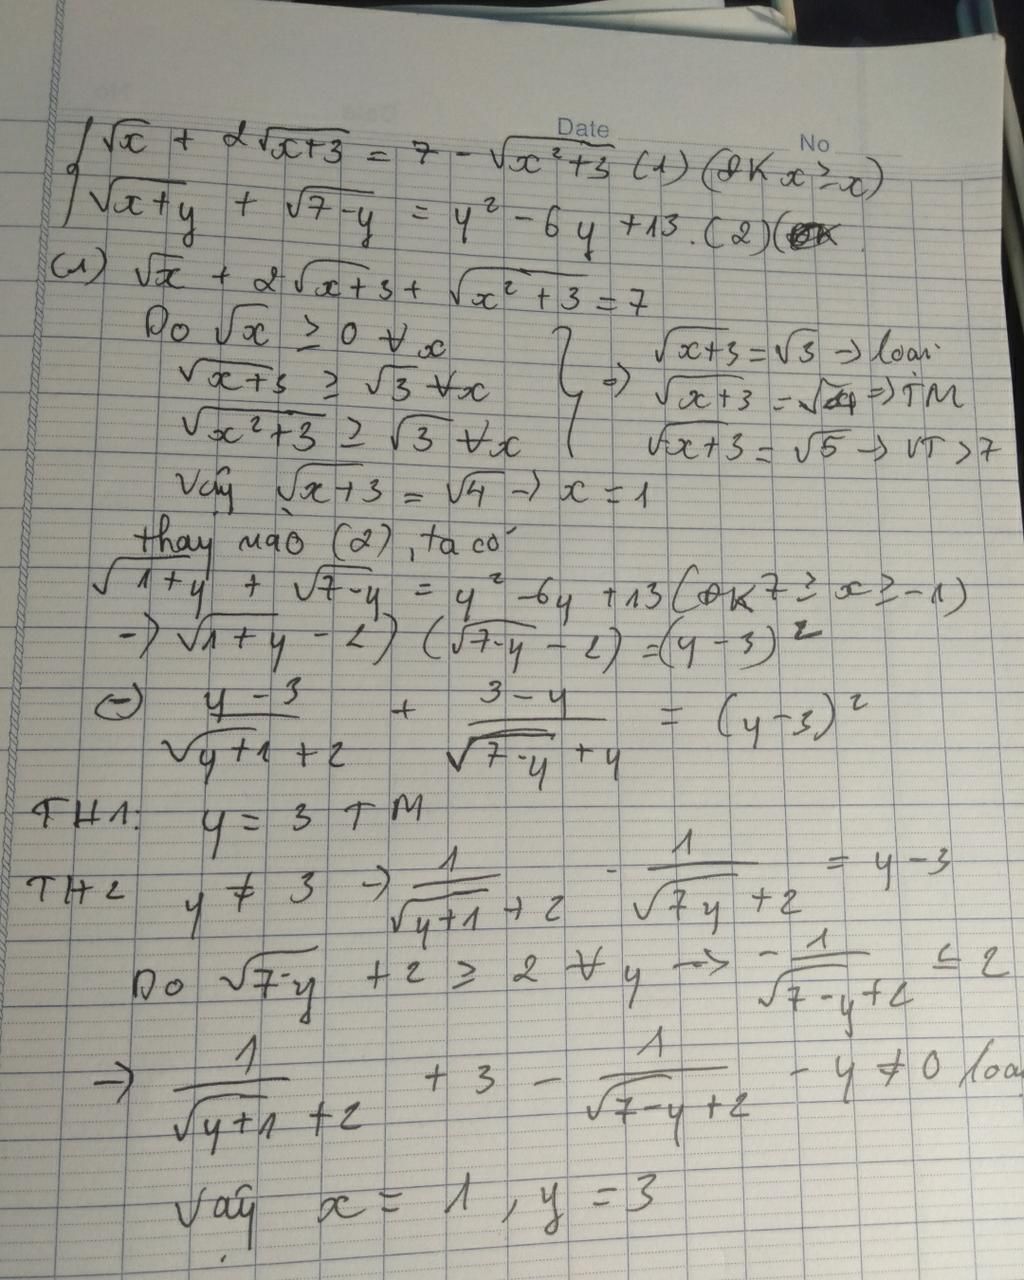 Date
No
√x + 2√(x+3) = 7 - √(x²+3) (1) (ĐK x ≥ x)
√(x+y) + √(7-y) = y² - 6y + 13. (2) (
(1) √x + 2√(x+3) + √(x²+3) = 7
Do √x ≥ 0 ∀x
√(x+3) ≥ √3 ∀x
√(x²+3) ≥ √3 ∀x
⇒ √(x+3) = √3 → loại
√(x+3) = √4 ⇒ TM
√(x+3) = √5 → VT > 7
Vậy √(x+3) = √4 → x = 1
thay vào (2), ta có
√(1+y) + √(7-y) = y² - 6y + 13 (ĐK 7 ≥ x ≥ -1)
→ √(1+y) - 2) (√(7-y) - 2) = (y-3)²
⇔ (y-3)/(√(y+1) + 2) + (3-y)/(√(7-y) + y) = (y-3)²
TH1: y = 3 TM
TH2 y ≠ 3 → 1/(√(y+1) + 2) - 1/(√(7y) + 2) = y - 3
Do √(7-y) + 2 ≥ 2 ∀y → -1/(√(7-y) + 2) ≤ 2
→ 1/(√(y+1) + 2) + 3 - 1/(√(7-y) + 2) - y ≠ 0 loạ
Vậy x = 1, y = 3